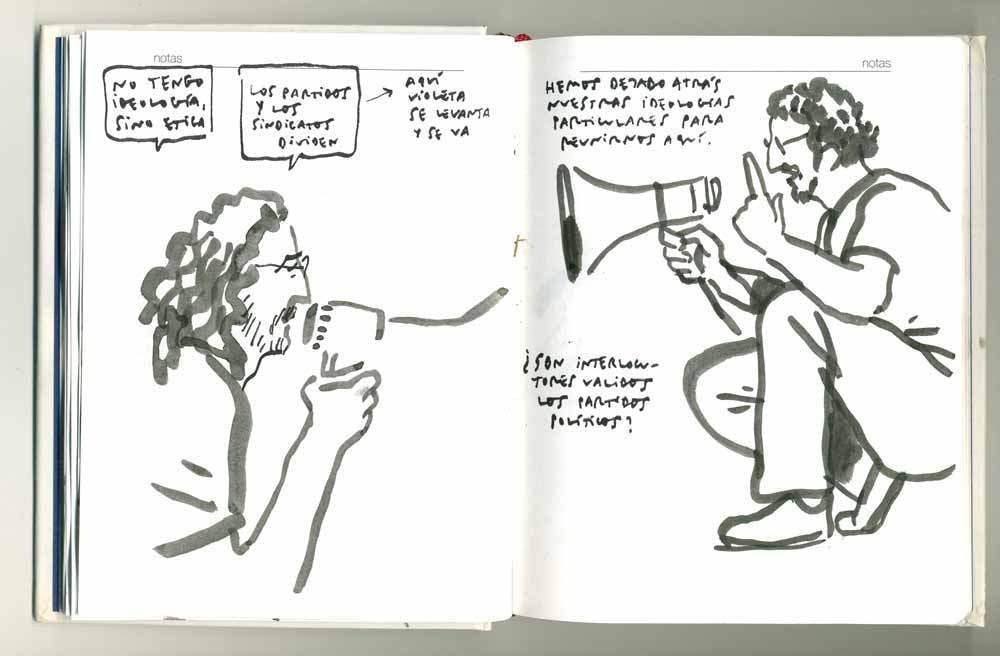 notas
NO TENGO
IDEOLOGÍA,
SINO ETICA
LOS PARTIDOS
Y LOS
SINDICATOS
DIVIDEN
AQUÍ
VIOLETA
SE LEVANTA
Y SE VA
notas
HEMOS DEJADO ATRÁS
NUESTRAS IDEOLOGÍAS
PARTICULARES PARA
REUNIRNOS AQUÍ.
¿SON INTERLOCU-
TORES VALIDOS
LOS PARTIDOS
POLÍTICOS?